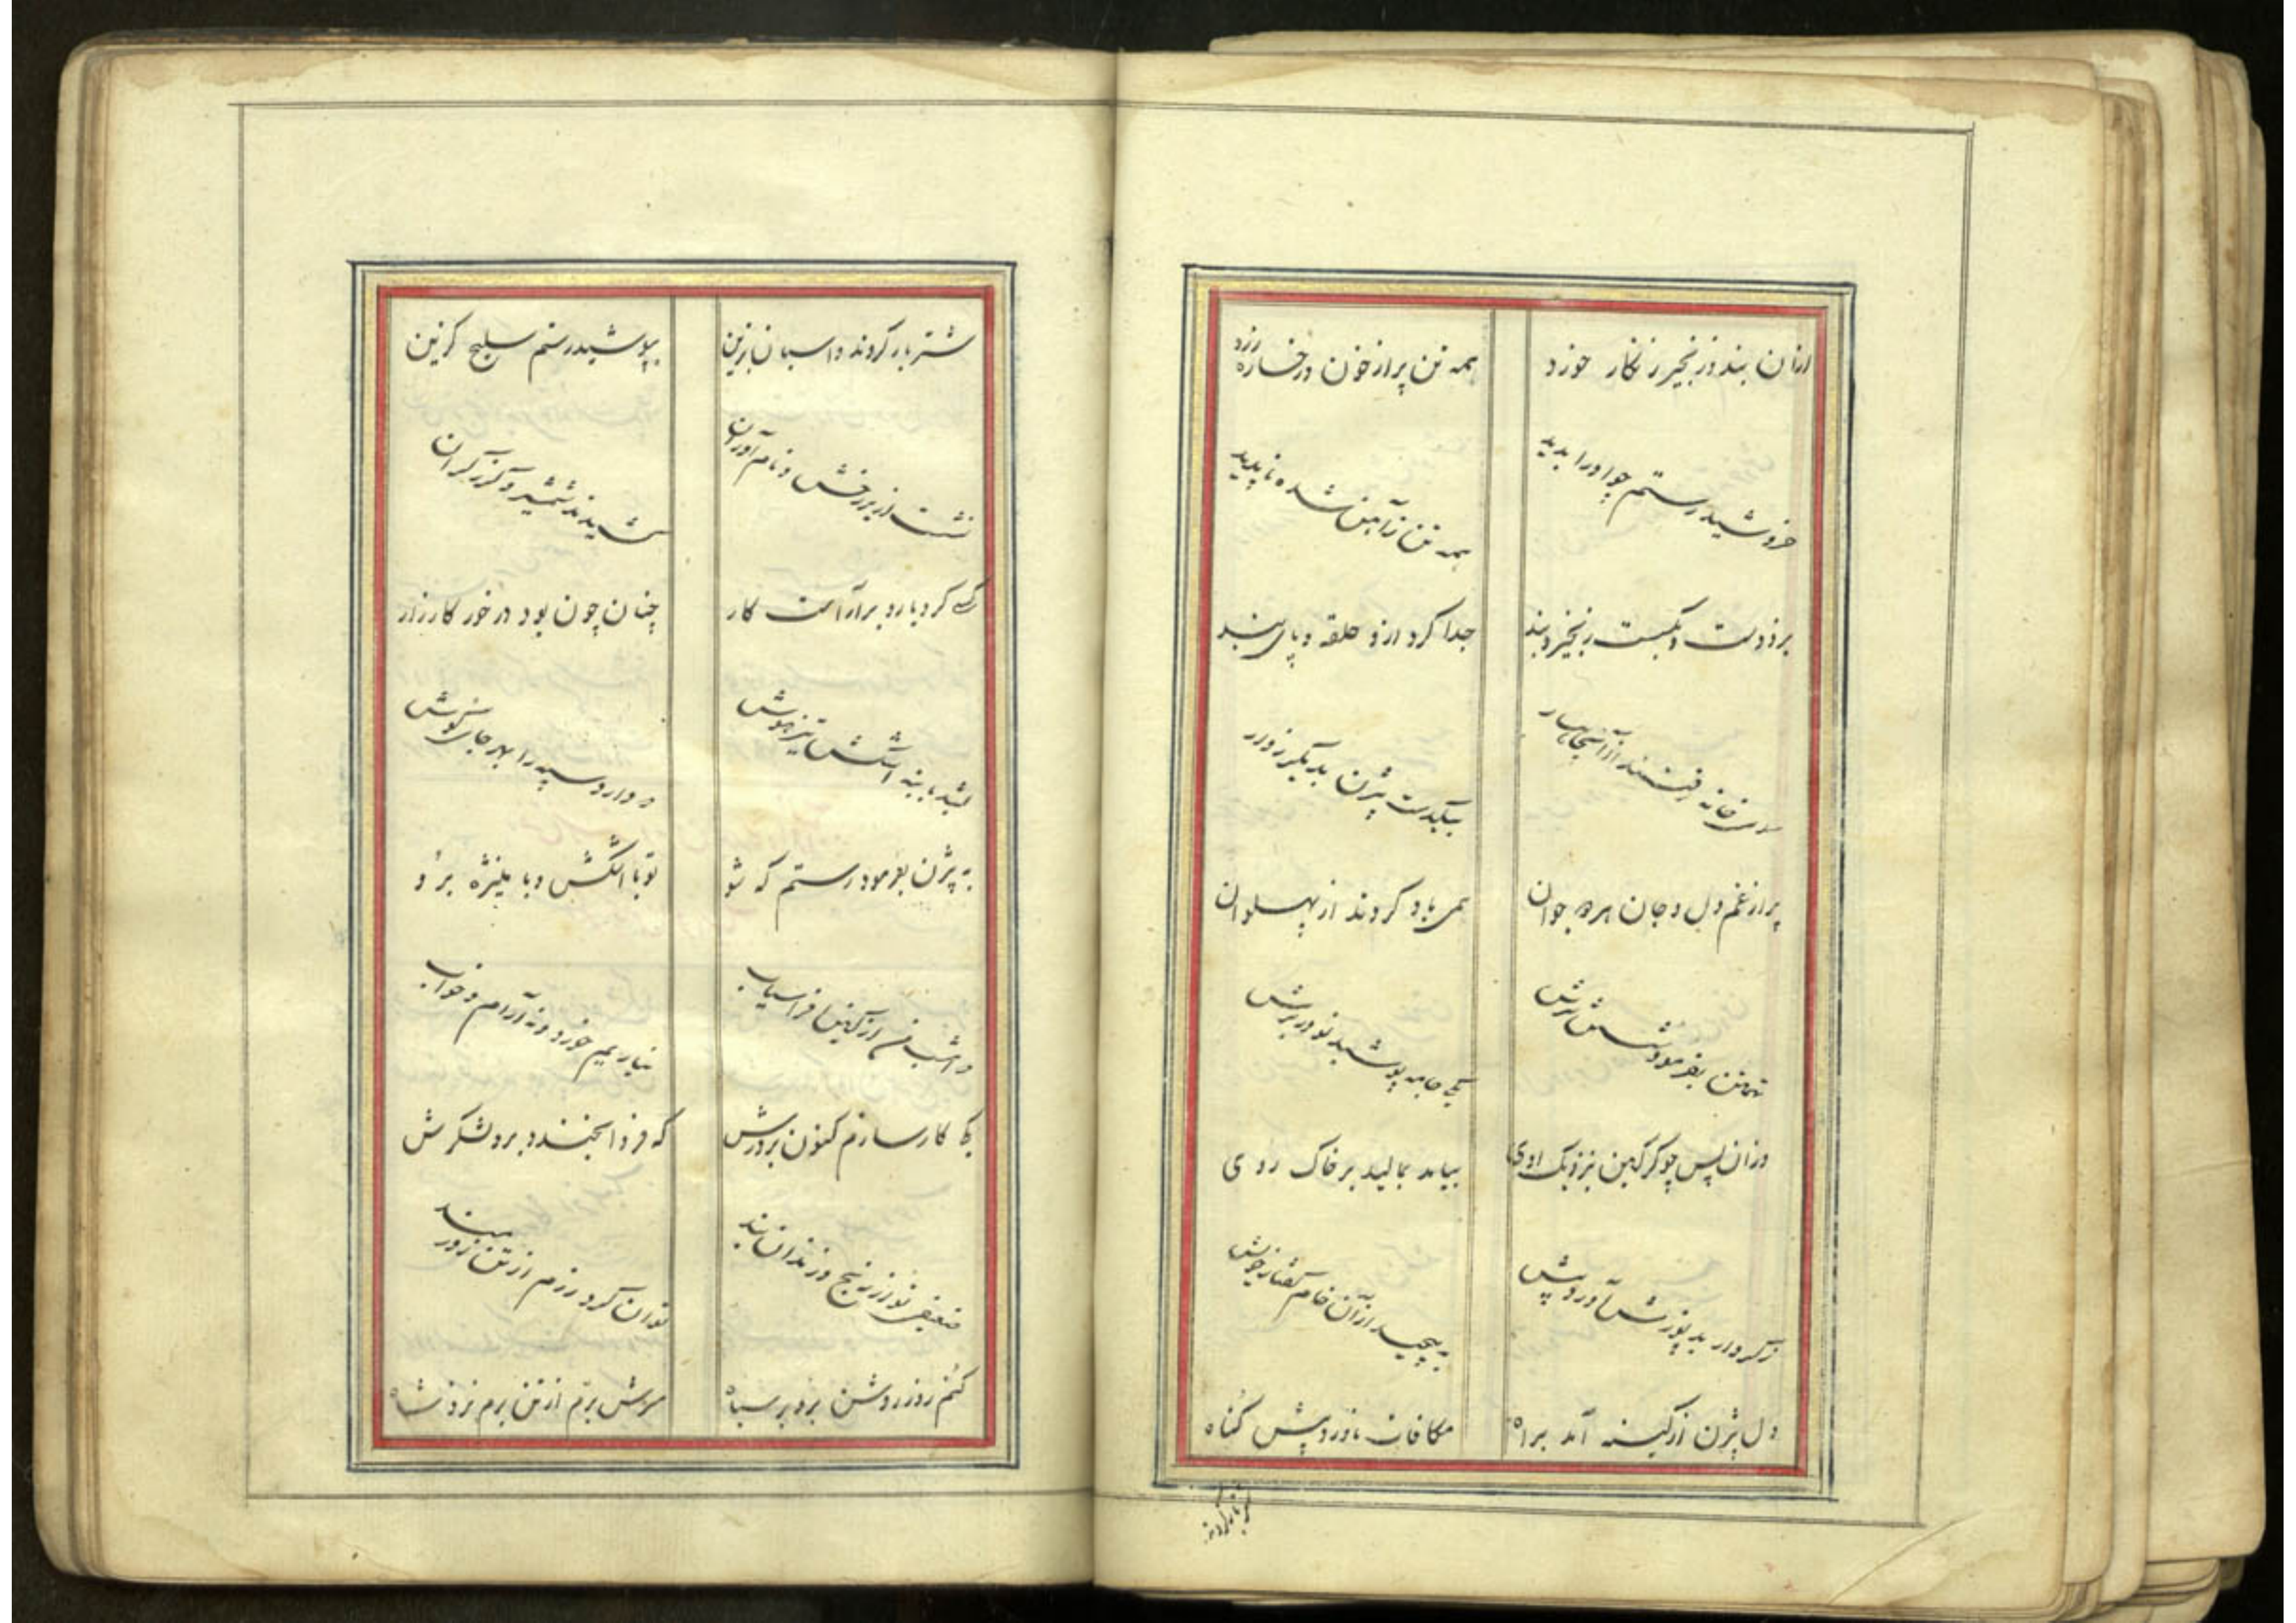 ازان بند زنجیر زنکار خورد همه تن پر از خون و رخساره زرد
خروشید رستم چو او را بدید همه تن ز آهن شده ناپدید
بزد دست و بگسست زنجیر و بند جدا کرد ازو حلقه و پای بند
سوی خانه رفتند از آن چاهسار بیکدست بیژن بدیگر زوار
پر از غم دل و جان هر دو جوان همی یاد کردند از پهلوان
تهمتن بفرمود شستن سرش یکی جامه پوشید نو در برش
وزان پس چو کرکین بنزدیک اوی بیامد بمالید بر خاک روی
ز کردار بد پوزش آورد پیش به پیچید ازان خام گفتار خویش
دل بیژن از کینه آمد براه مکافات ناورد پیش کناه
شتر بار کردند
شتر بار کردند و اسبان بزین بپوشید رستم سلیح گزین
نشست از بر رخش و نام آوران کشیدند شمشیر و گرز گران
کسی کرد بار و بر آراست کار چنان چون بود در خور کارزار
بشد با بنه اشکش تیزهوش که دارد سپه را بهر جای گوش
به بیژن بفرمود رستم که شو تو با اشکش و با منیژه برو
که امشب من از کین افراسیاب نیابیم خورد و نه آرام و خواب
یکی کار سازم کنون بر درش که فردا بخندد برو لشکرش
ضعیفی تو از رنج و زندان و بند توان کرد رزم از تن زورمند
کنم روز روشن بدو بر سیاه سرش برم از تن برم نزد شاه